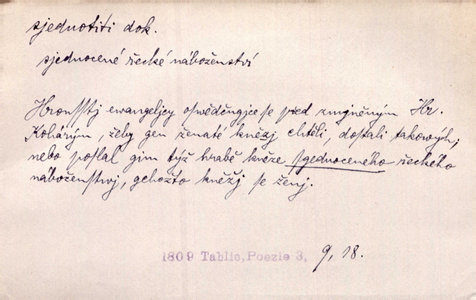 sjednotiti dok.
sjednocené řecké náboženství
Hronsstj ewangeljcy oswědčugjce se před zmjněným Hr.
Kohárym, žeby gen ženaté kněžj chtěli, dostali takowých,
nebo poslal gim týž hrabě kněze sgednoceného řeckého
náboženstwj, gehožto kněžj se ženj.
1809 Tablic, Poezie 3,
9, 18.